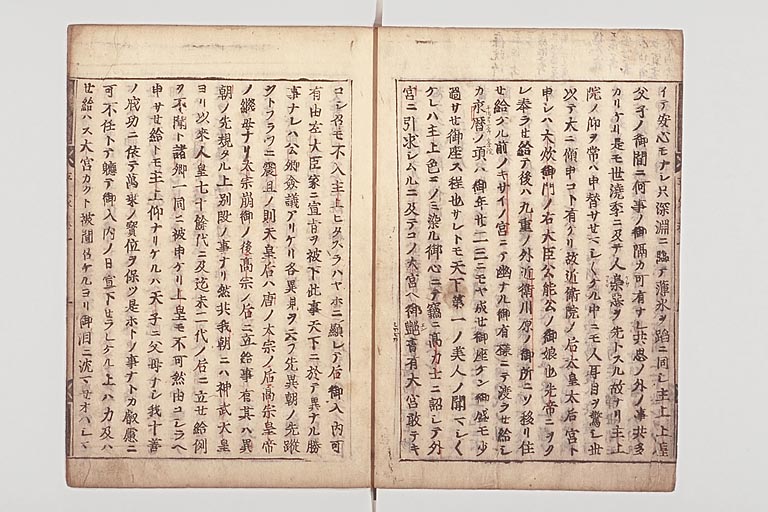 イテ安心モナシ只深淵ニ臨テ薄氷ヲ蹈ニ同シ主上上皇
父子ノ御間ニ何事ノ御隔カ可有ナレ共思ノ外ノ事共多
カリケリ是モ世澆季ニ及テ人梟悪ヲ先トスル故ナリ主上
院ノ仰ヲ常ハ申替サセマシ〱ケル中ニモ人耳目ヲ驚シ世
以テ大ニ傾申コト有ケリ故近衛院ノ后太皇太后宮ト
申シハ大炊御門ノ右大臣公能公ノ御娘也先帝ニヲク
レ奉ラセ給テ後ハ九重ノ外近衛川原ノ御所ニソ移リ住
セ給ケル前ノキサイノ宮ニテ幽ナル御有様ニテ渡ラセ給シ
カ永暦ノ頃ハ御年廿二三ニモヤ成セ御座ケン御盛モ少
過サセ御座ス程也サレトモ天下第一ノ美人ノ聞マシ〱
ケレハ主上色ニノミ染ル御心ニテ竊ニ高力士ニ詔シテ外
宮ニ引求シムルニ及テコノ大宮ヘ御艶書有大宮敢テキ
コシ召モ不入主上ヒタスラハヤホニ顕レテ后御入内可
有由左大臣家ニ宣旨ヲ被下此事天下ニ於テ異ナル勝
事ナレハ公卿僉議アリケリ各異見ヲ云フ先異朝ノ先蹤
ヲトフラフニ震旦ノ則天皇后ハ唐ノ太宗ノ后高宗皇帝
ノ継母ナリ太宗崩御ノ後高宗ノ后ニ立給事有其ハ異
朝ノ先規タル上別段ノ事ナリ然共我朝ニハ神武天皇
ヨリ以来人皇七十餘代ニ及迄未二代ノ后ニ立セ給例
ヲ不聞ト諸卿一同ニ被申ケリ上皇モ不可然由コシラヘ
申サセ給トモ主上仰ナリケルハ天子ニ父母ナシ我十善
ノ戒功ニ依テ萬乗ノ寳位ヲ保ツ是ホトノ事ナトカ叡慮ニ
可不任トテ軈テ御入内ノ日宣下セラレケル上ハ力及ハ
セ給ハス大宮カクト被聞召ケルヨリ御涙ニ沈マセオハシマ